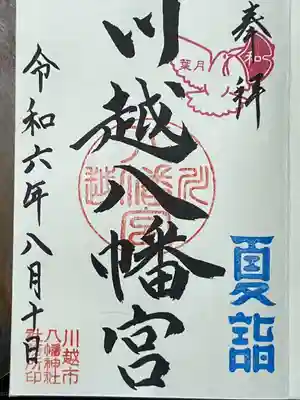 奉拝
葉月
和
川越八幡宮
夏詣
令和六年八月十日
川越市
八幡神社
社務所印